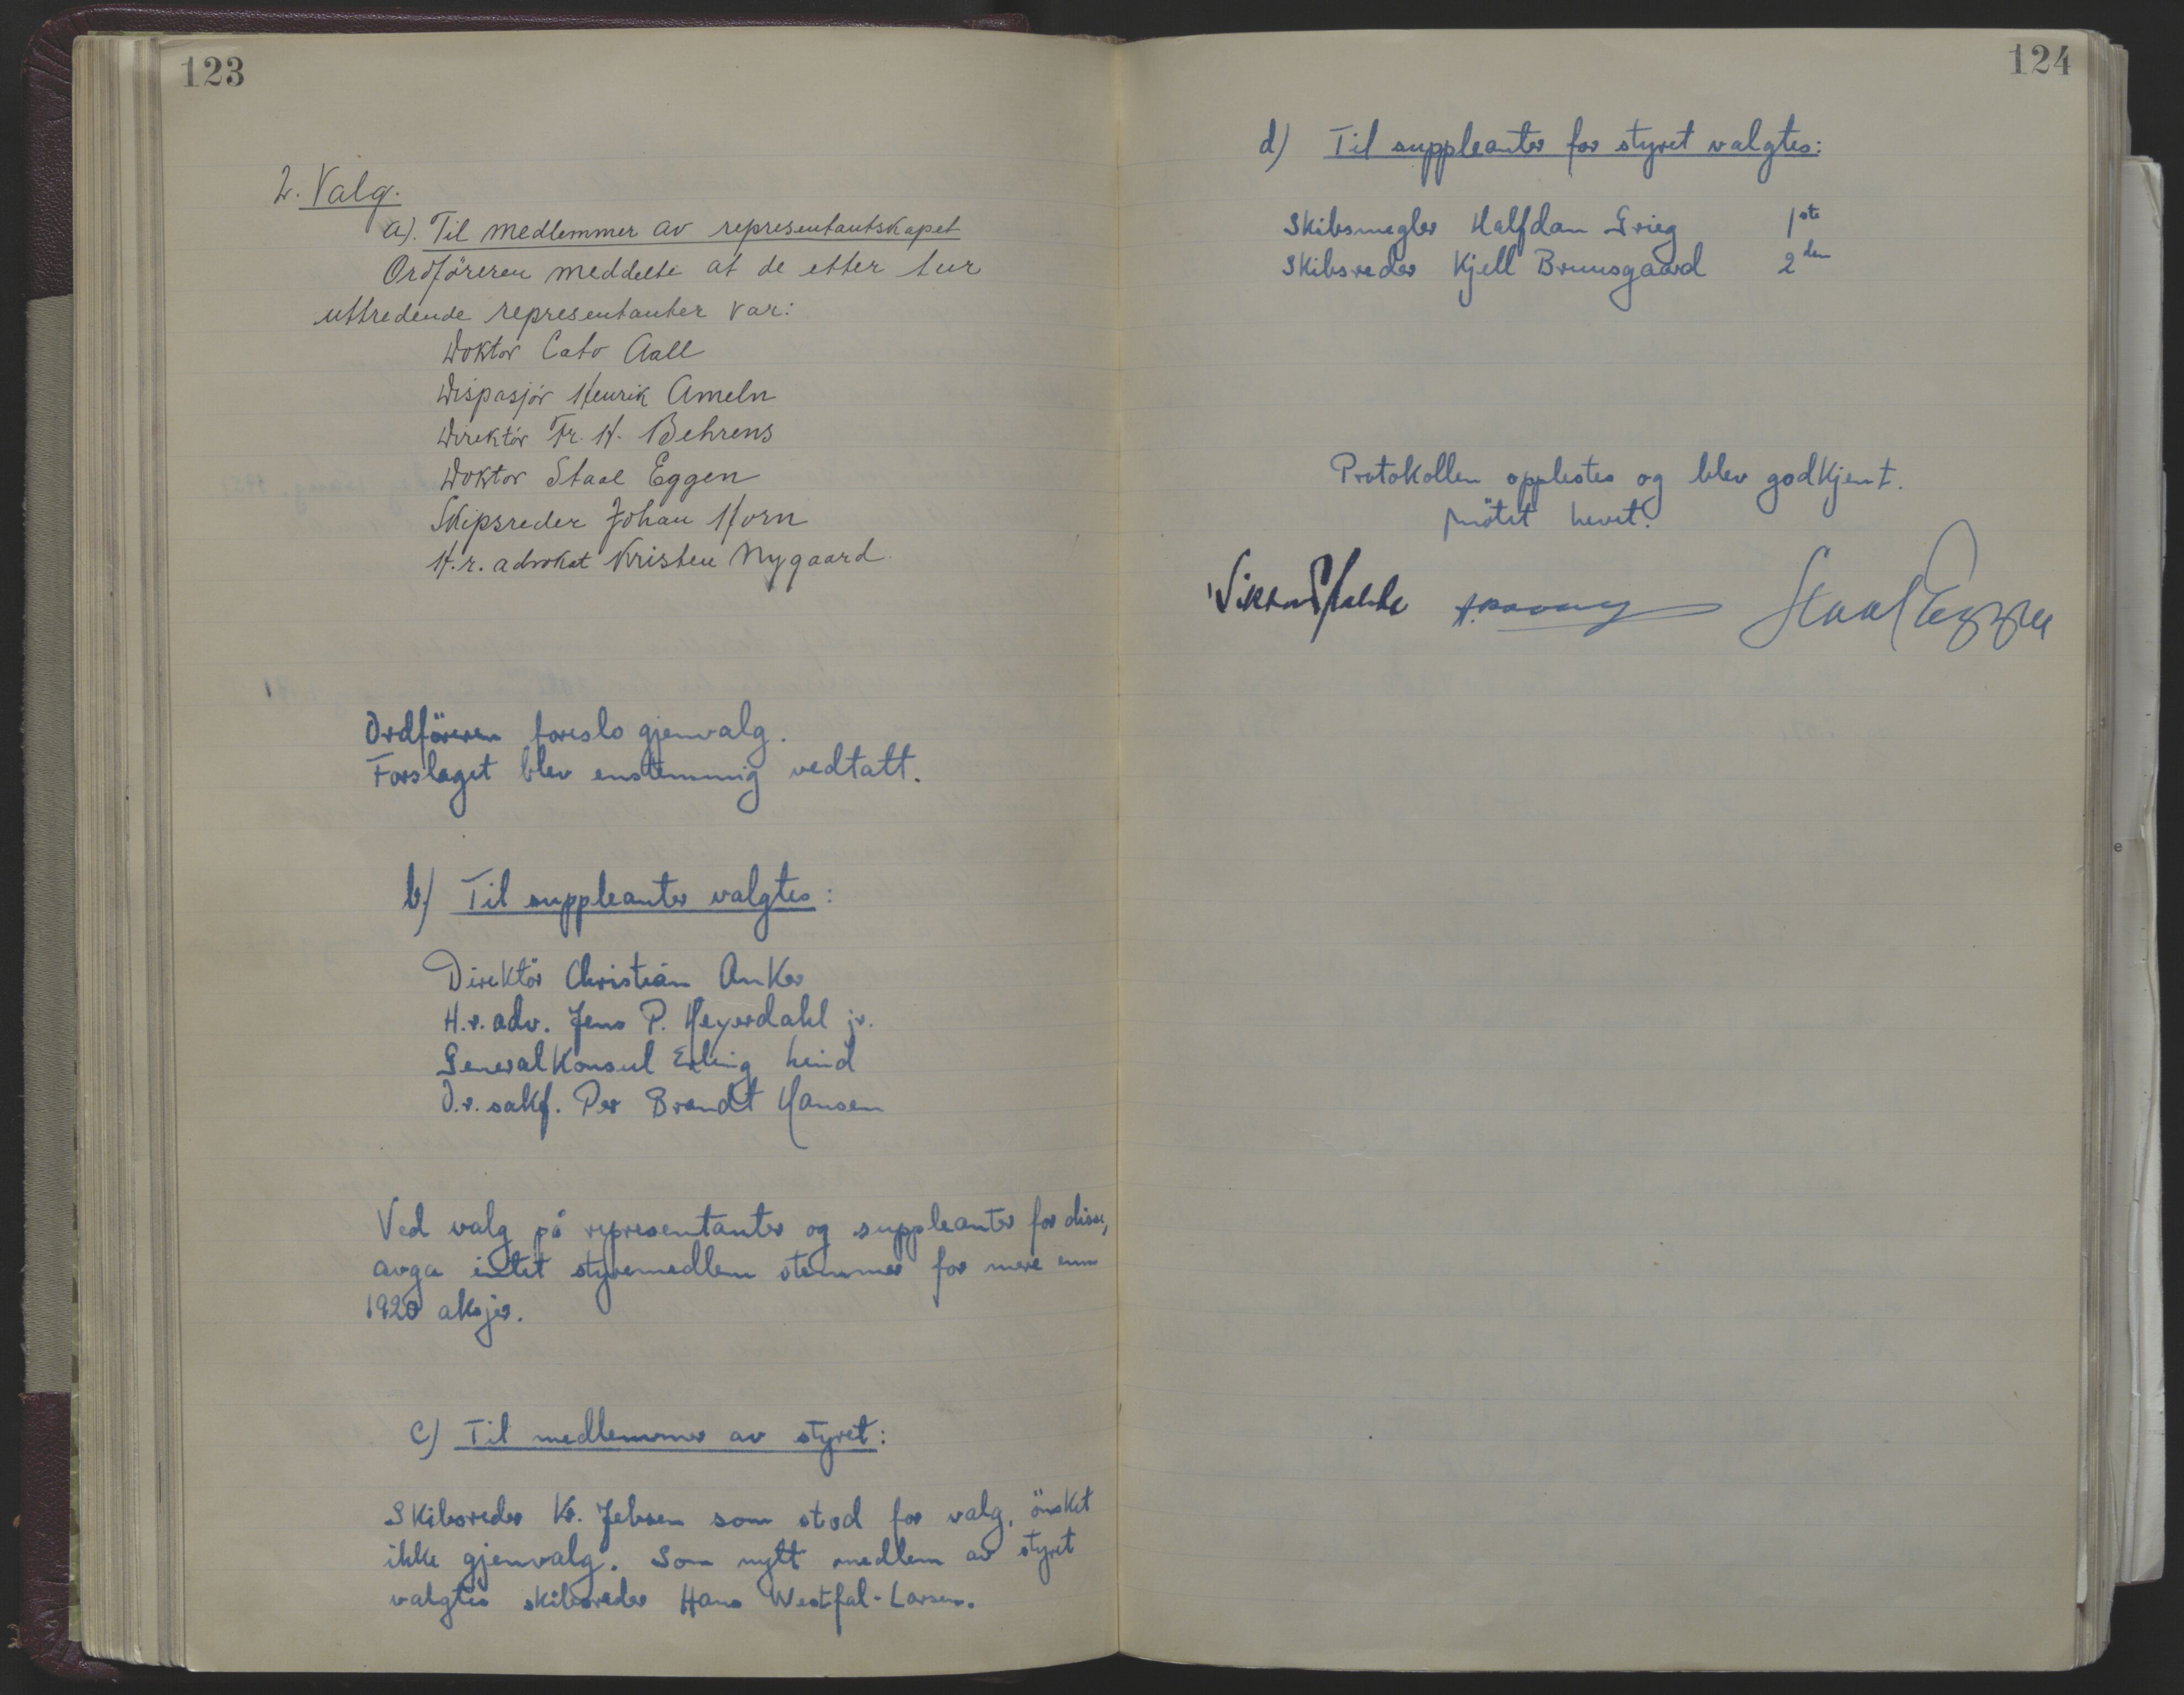 123
2. Valg.
a). Til medlemmer av representantskapet
Ordföreren meddelte at de etter tur
uttredende representanter var:
Doktor Cato Aall
Dispasjör Henrik Ameln
Direktör Fr. H. Behrens
Doktor Staal Eggen
Skipsreder Johan Horn
H.r. advokat Kristen Nygaard
Ordföreren foreslo gjenvalg.
Forslaget blev enstemmig vedtatt.
b.) Til suppleanter valgtes:
Direktör Christian Anker
H.r. adv. Jens P. Heyerdahl jr.
Generalkonsul Erling Lind
O.r. sakf. Per Brandt Hansen
Ved valg på representanter og suppleanter for disse,
avga intet styremedlem stemmer for mere enn
1920 aksjer.
c) Til medlemmer av styret:
Skibsreder Kr. Jebsen som stod for valg, önsket
ikke gjenvalg. Som nytt medlem av styret
valgtes skibsreder Hans Westfal-Larsen.
124
d) Til suppleanter for styret valgtes:
Skibsmegler Halfdan Grieg 1ste
Skibsreder Kjell Bruusgaard 2den
Protokollen opplestes og blev godkjent.
Mötet hevet.
Staal Eggen